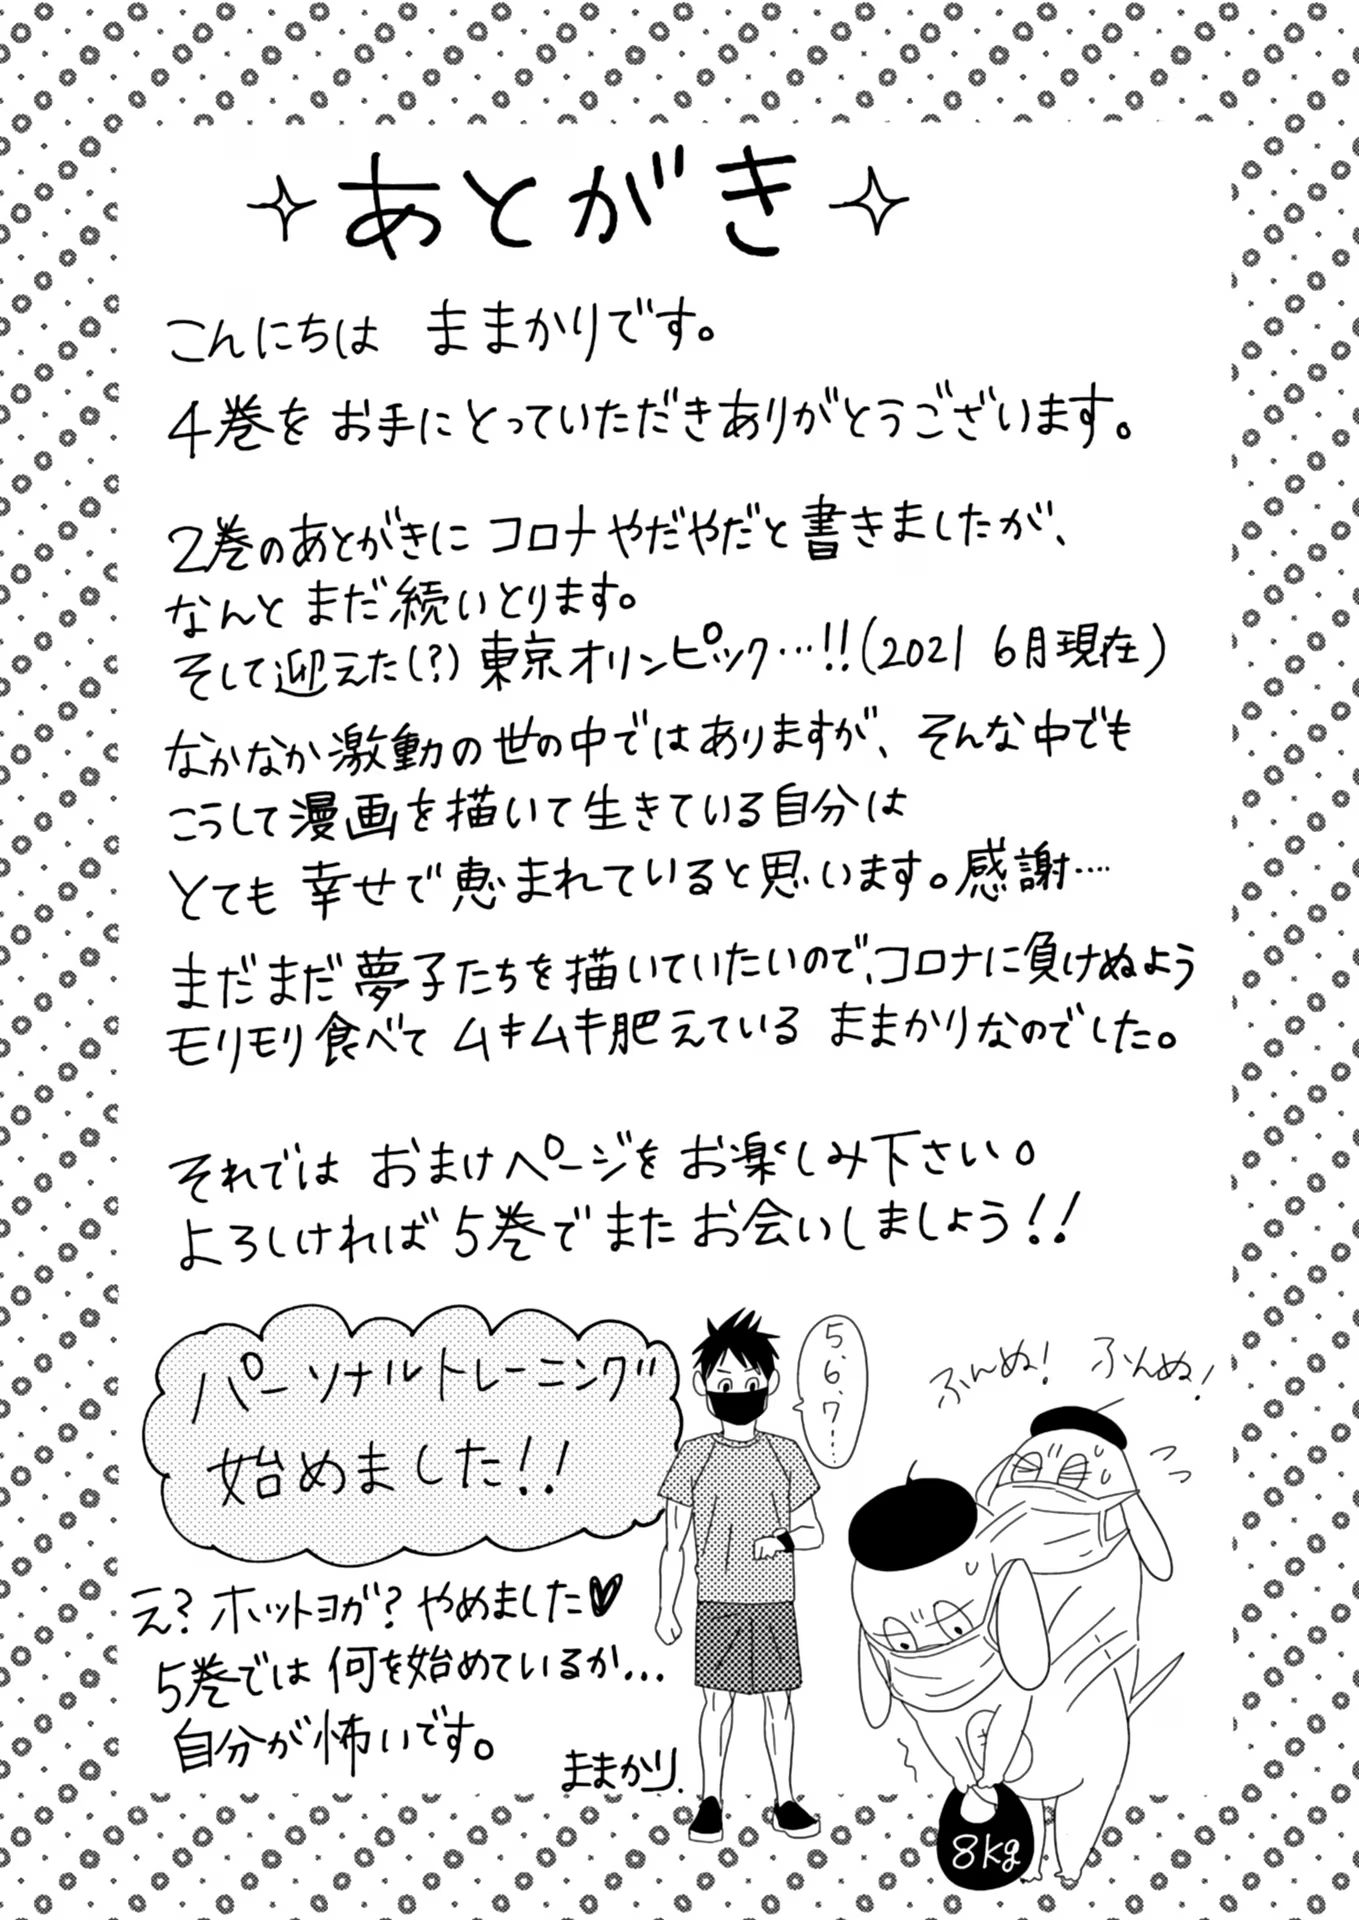 あとがき
こんにちは ままかりです。
4巻を お手にとっていただきありがとうございます。
2巻のあとがきに コロナやだやだと書きましたが、
なんと まだ続いとります。
そして迎えた(?)東京オリンピック…!!(2021 6月現在)
なかなか激動の世の中ではありますが、そんな中でも
こうして漫画を描いて生きている自分は
とても 幸せで恵まれていると思います。感謝….
まだまだ夢子たちを描いていたいので、コロナに負けぬよう
モリモリ食べて ムキムキ肥えている ままかりなのでした。
それでは おまけページを お楽しみ下さい。
よろしければ 5巻で また お会いしましょう!!
パーソナルトレーニング
始めました!!
5、6、7……
ふんぬ! ふんぬ!
え?ホットヨガ?やめました♥
5巻では 何を始めているか…
自分が怖いです。
ままかり.
8kg